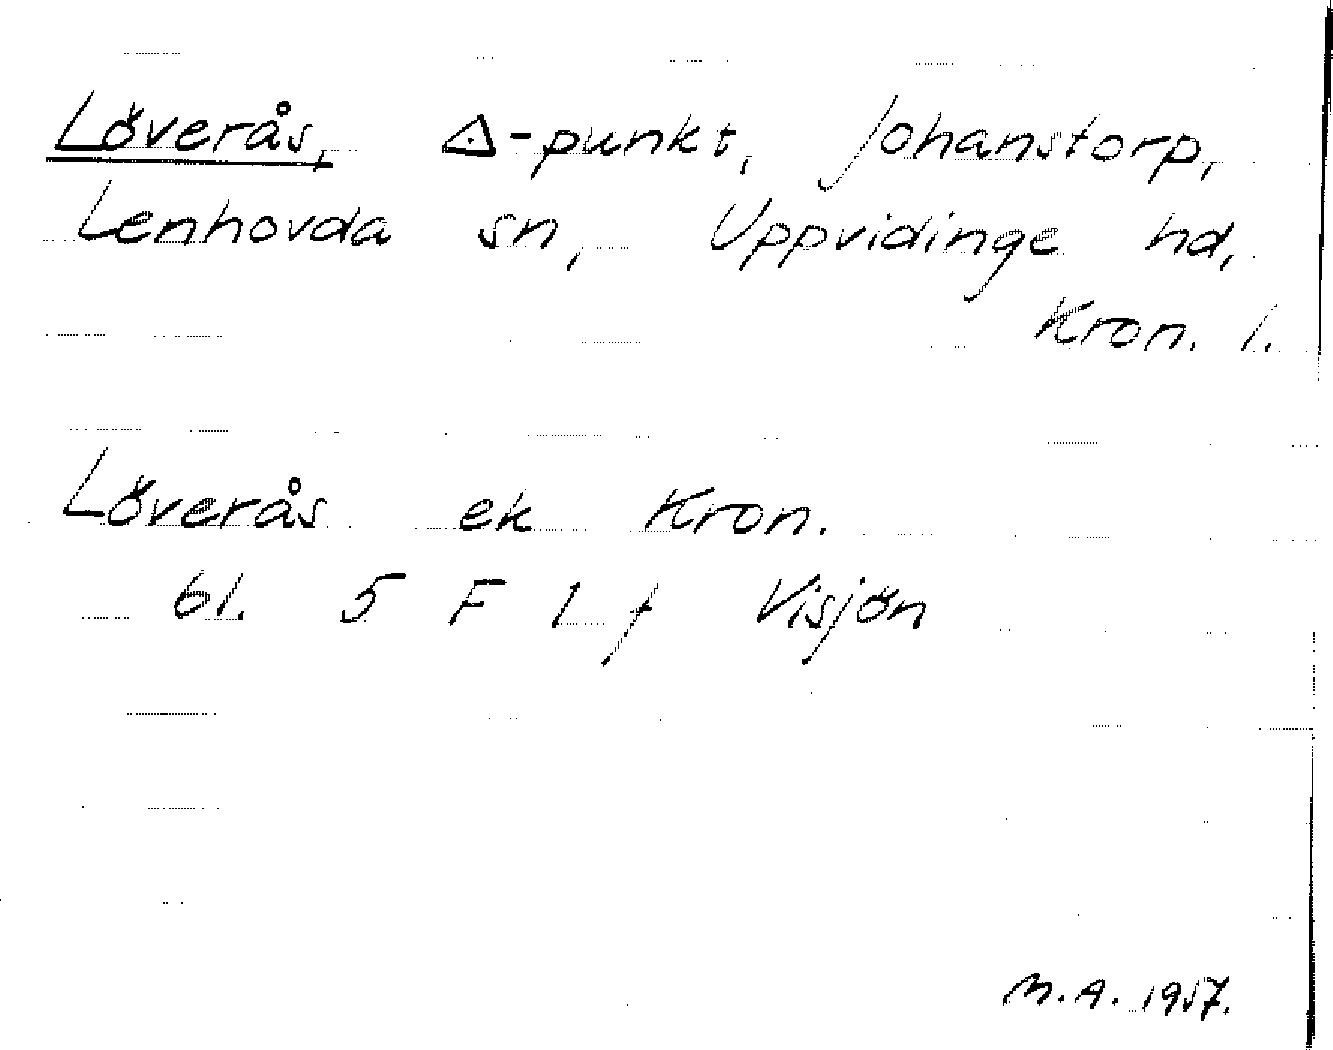 Löverås, △-punkt, Johanstorp,
Lenhovda sn, Uppvidinge hd,
Kron. l.
Löverås ek Kron.
bl. 5 F 1 f Visjön
M.A. 1957.